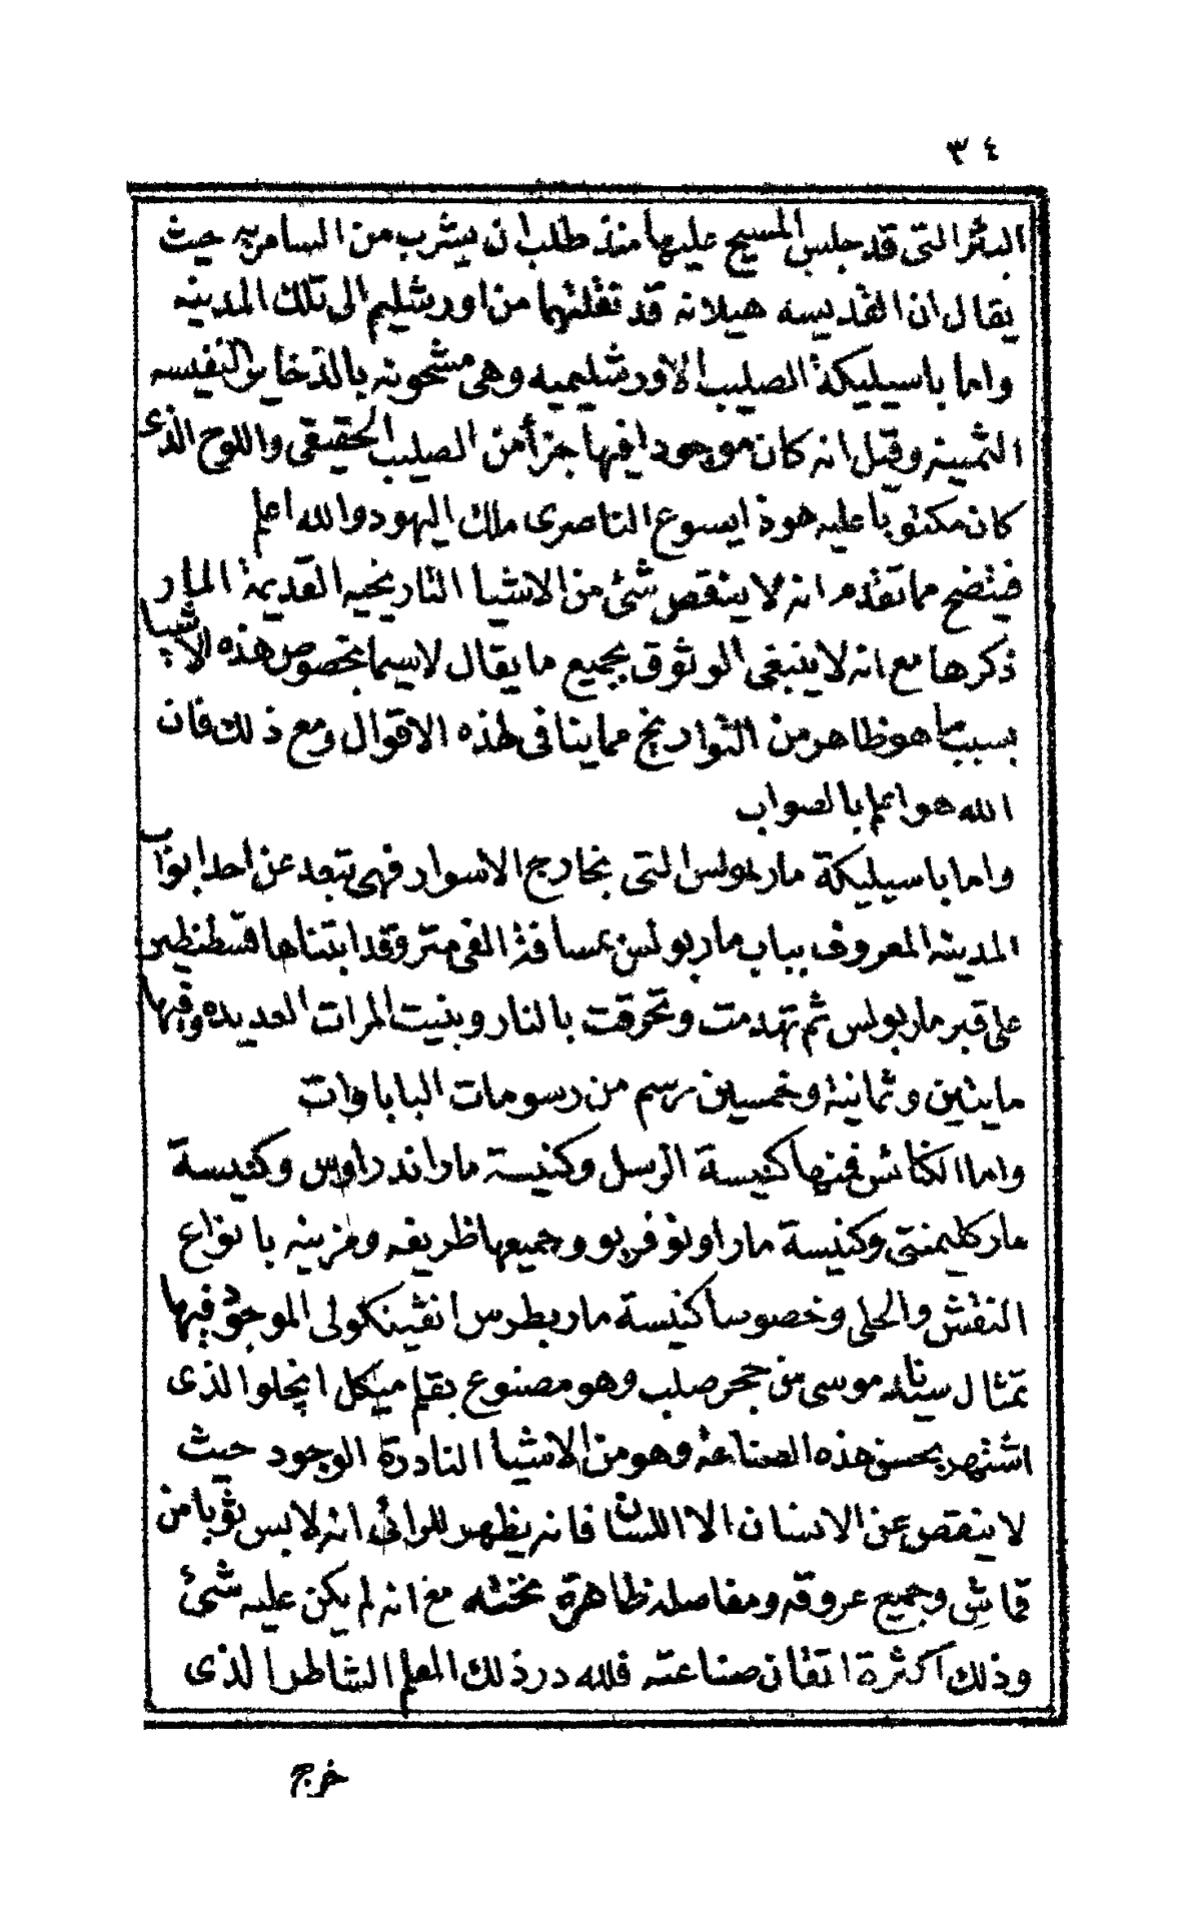 ٣٤
البئر التى قد جلس المسيح عليها منذ طلب ان يشرب من السامريه حيث
يقال ان القديسه هيلانه قد نقلتها من اورشليم الى تلك المدينه
واما باسيليكة الصليب الاورشليميه وهى مشحونه بالذخاير النفيسه
الثمينه وقيل انه كان موجودا فيها جزأ من الصليب الحقيقى واللوح الذى
كان مكتوبا عليه هوذا يسوع الناصرى ملك اليهود والله اعلم
فيتضح مما تقدم انه لا ينقص شئ من الاشيا التاريخيه القديمة المار
ذكرها مع انه لا ينبغى الوثوق بجميع ما يقال لاسيما بخصوص هذه الاشيا
بسبب ما هو ظاهر من التواريخ مما ينافى لهذه الاقوال ومع ذلك فان
الله هو اعلم بالصواب
واما باسيليكة مار بولس التى بخارج الاسوار فهى تبعد عن احد ابواب
المدينه المعروف بباب مار بولس بمسافة الفى متر وقد ابتناها قسطنطين
على قبر مار بولس ثم تهدمت وتحرقت بالنار وبنيت المرات العديده وفيها
مايتين وثمانية وخمسين رسم من رسومات الباباوات
واما الكنائس فمنها كنيسة الرسل وكنيسة مار اندراوس وكنيسة
مار كليمنتى وكنيسة مار اونوفريو وجميعها ظريفه ومزينه بانواع
النقش والحلى وخصوصا كنيسة مار بطرس انفينكولى الموجود فيها
تمثال سيدنا موسى من حجر صلب وهو مصنوع بقلم ميكل انجلوا الذى
اشتهر بحسن هذه الصناعة وهو من الاشيا النادرة الوجود حيث
لا ينقص عن الانسان الا اللسان فانه يظهر للرائى انه لابس ثوبا من
قماش وجميع عروقه ومفاصله ظاهرة تحته مع انه لم يكن عليه شئ
وذلك اكثرة اتقان صناعته فلله در ذلك المعلم الشاطر الذى
خرج